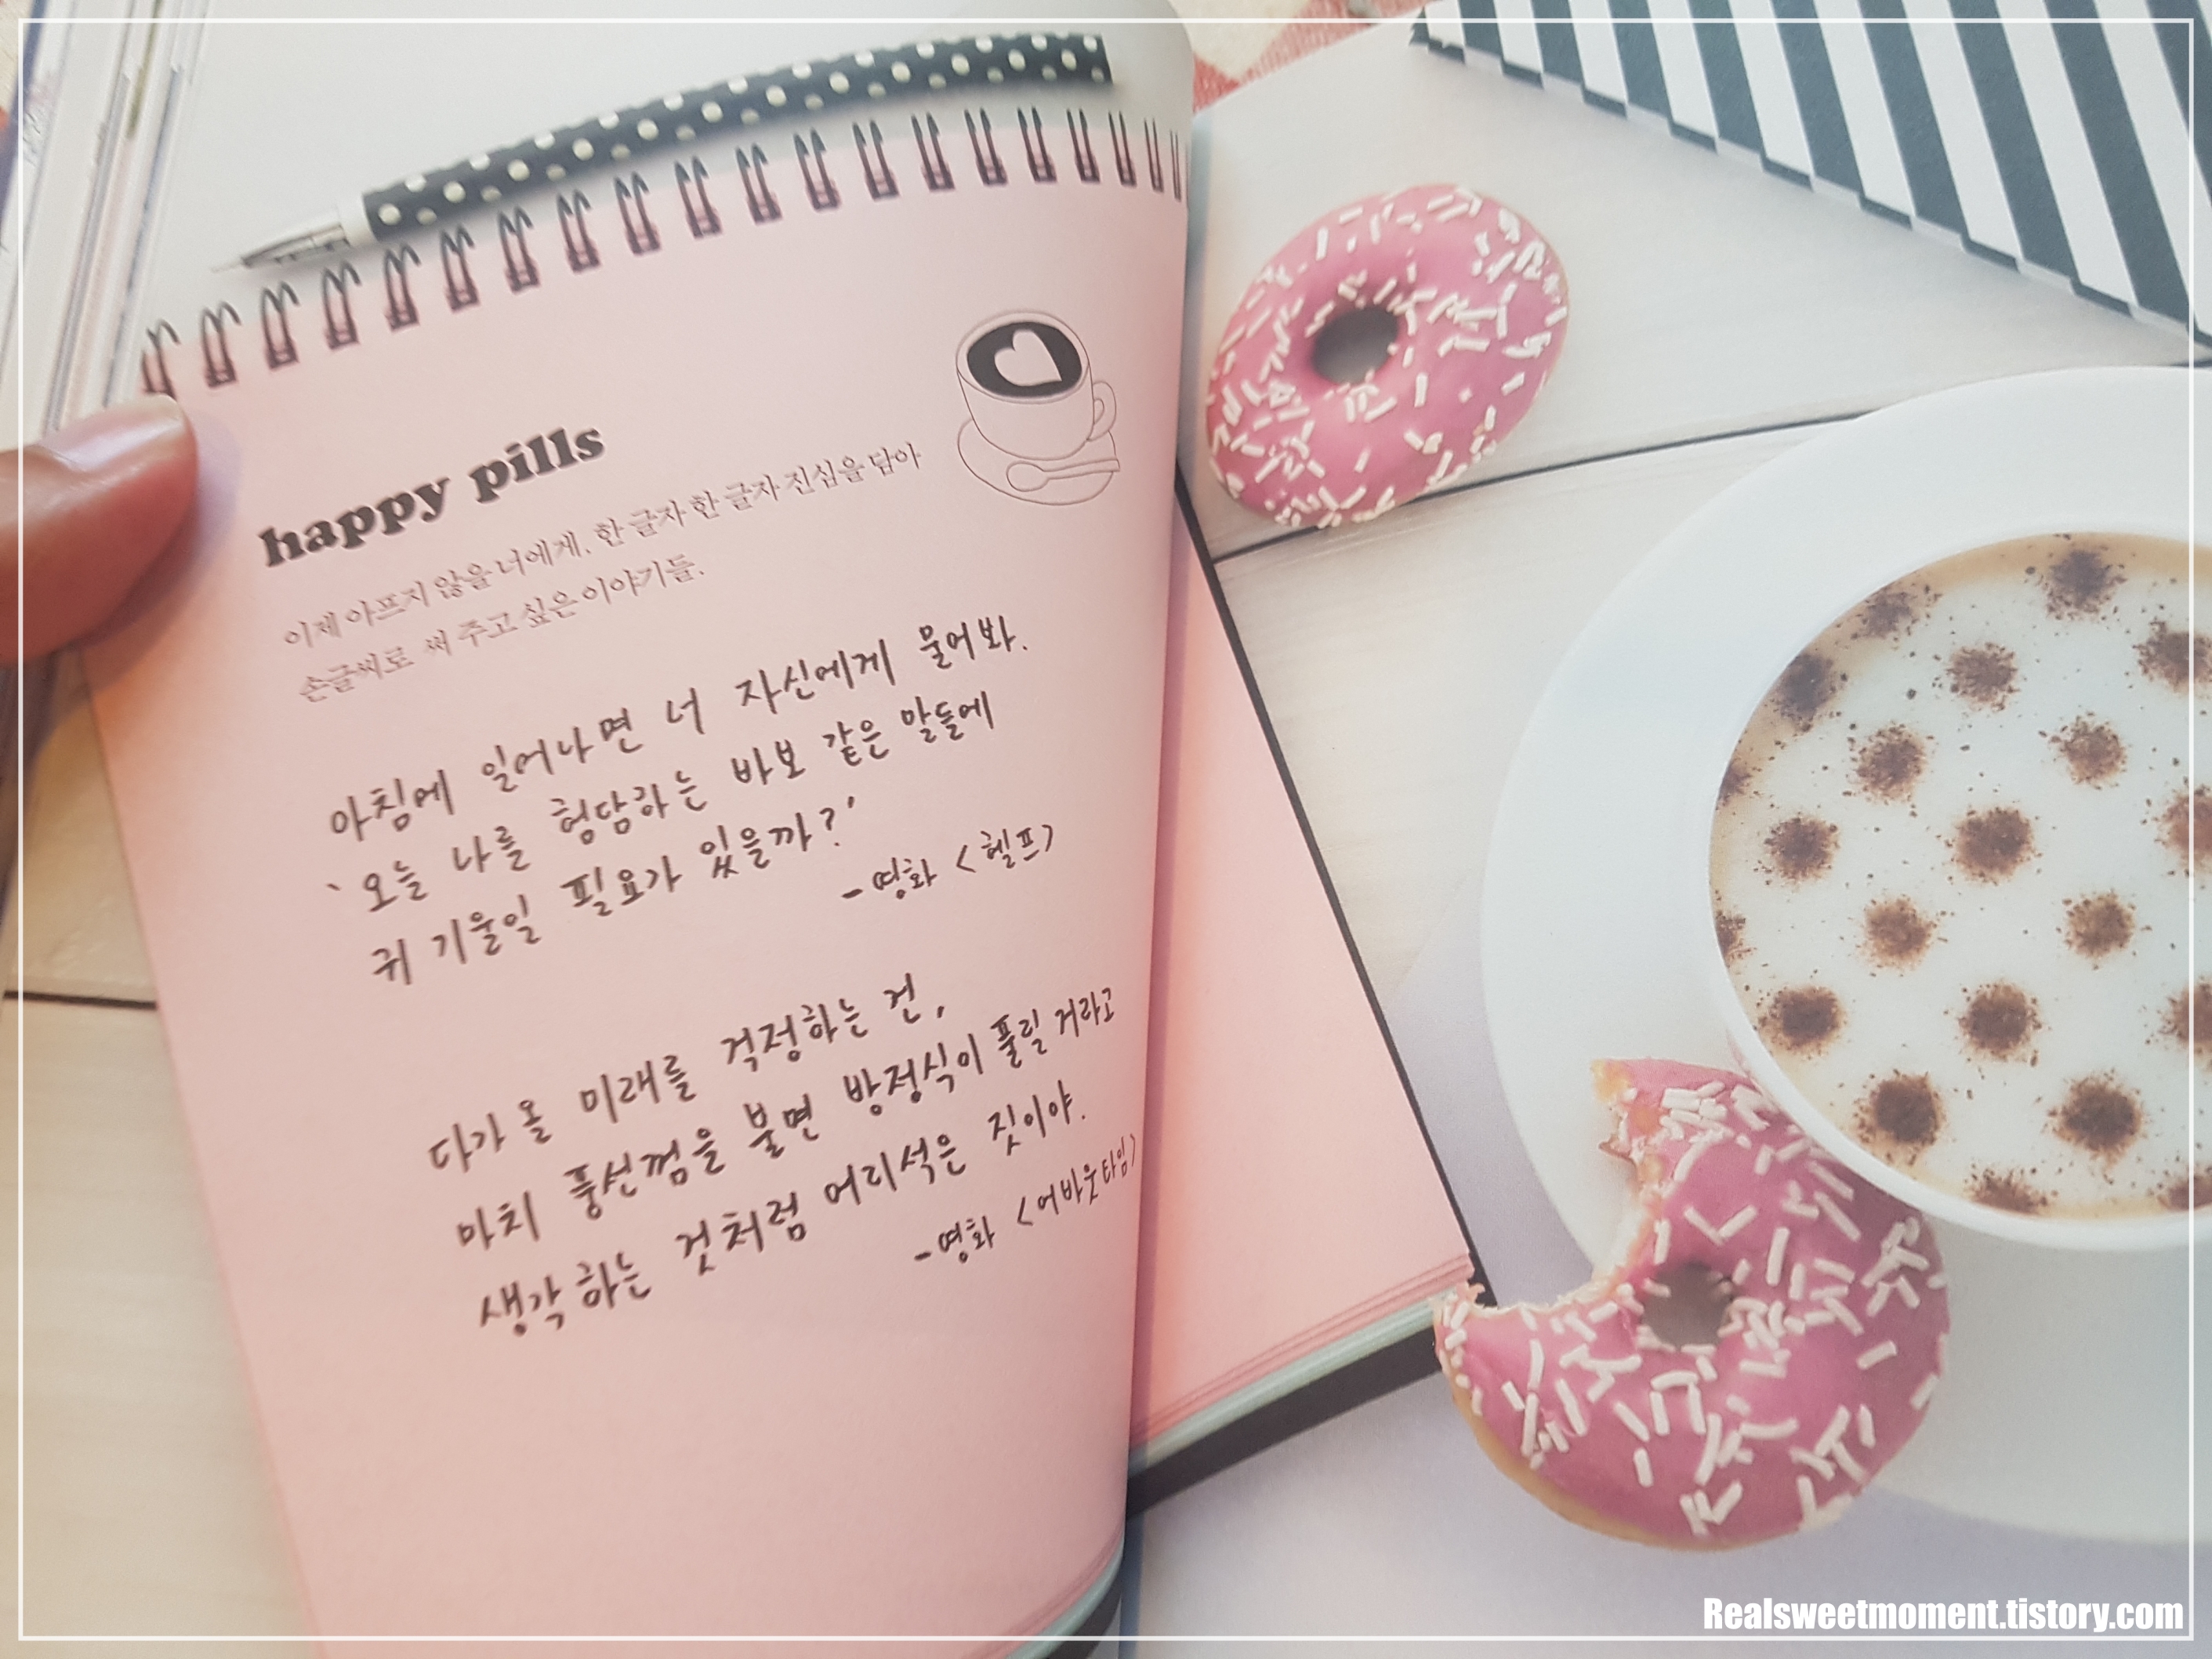 happy pills
이제 아프지 않을 너에게. 한 글자 한 글자 진심을 담아
손글씨로 써 주고 싶은 이야기들.
아침에 일어나면 너 자신에게 물어봐.
'오늘 나를 험담하는 바보 같은 말들에
귀 기울일 필요가 있을까?'
- 영화 <헬프>
다가올 미래를 걱정하는 건,
마치 풍선껌을 불면 방정식이 풀릴 거라고
생각하는 것처럼 어리석은 짓이야.
- 영화 <어바웃타임>
Realsweetmoment.tistory.com